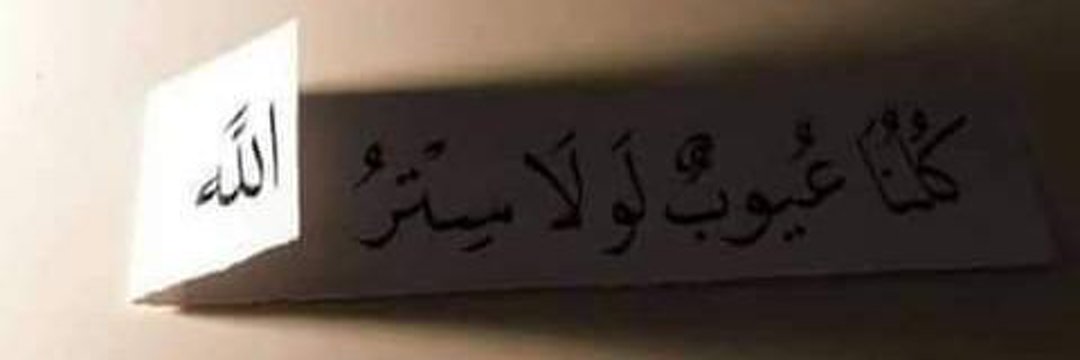 كُلُّنَا عُيُوبٌ لَوَلَا سِتْرُ اللَّه